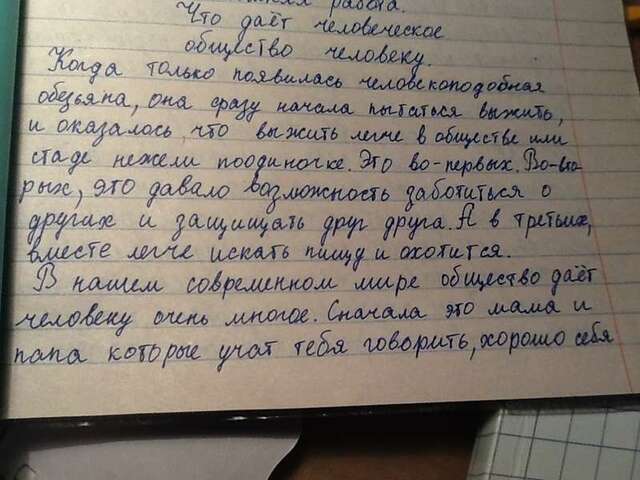 работа.
Что даёт человеческое
общество человеку.
Когда только появилась человекоподобная
обезьяна, она сразу начала пытаться выжить,
и оказалось, что выжить легче в обществе или
стаде нежели поодиночке. Это во-первых. Во-вто-
рых, это давало возможность заботиться о
других и защищать друг друга. А в третьих,
вместе легче искать пищу и охотится.
В нашем современном мире общество даёт
человеку очень многое. Сначала это мама и
папа которые учат тебя говорить, хорошо себя